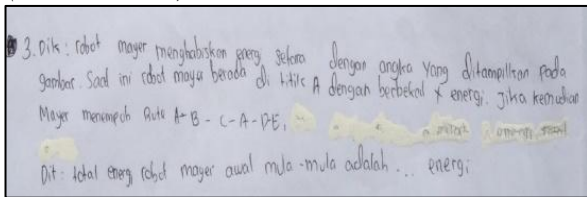 3. Dik : robot mayer menghabiskan energi setara dengan angka yang ditampilkan pada
gambar. Saat ini robot mayer berada di titik A dengan berbekal x energi. Jika kemudian
Mayer menempuh Rute A-B-C-A-D-E,
Dit : total energi robot mayer awal mula-mula adalah ... energi